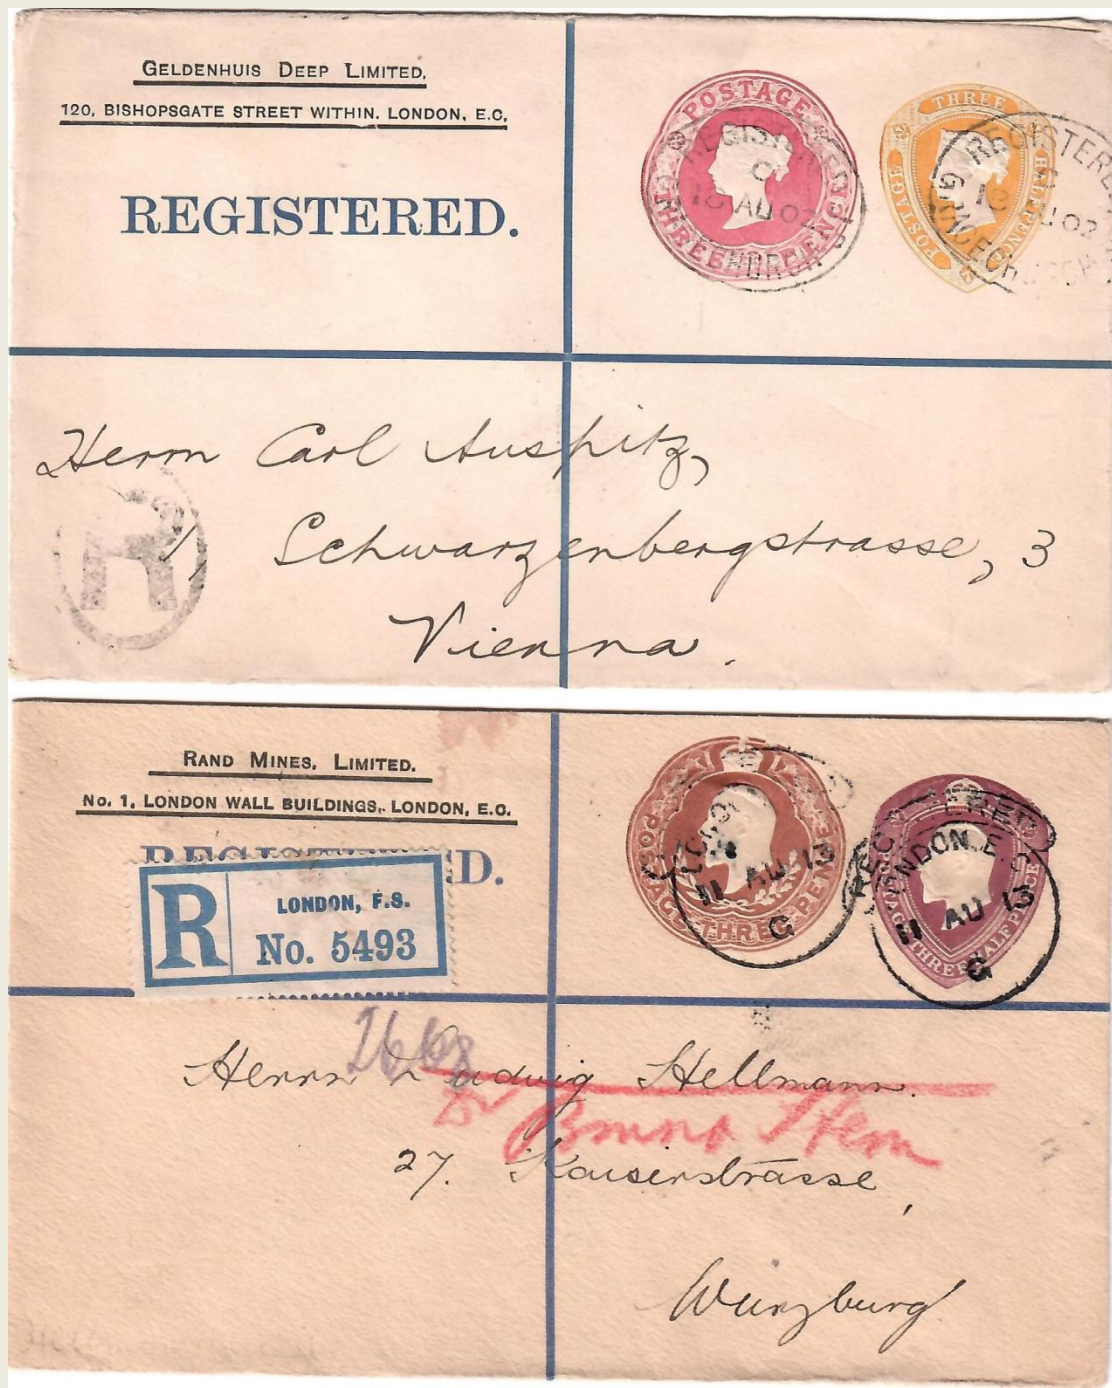 GELDENHUIS DEEP LIMITED.
120, BISHOPSGATE STREET WITHIN. LONDON, E.C.
REGISTERED.
POSTAGE
THREE PENCE
REGISTERED
AU 02
THREE HALFPENCE
POSTAGE
REGISTERED
AU 02
GRACECHURCH
Herrn Carl Auspitz,
Schwarzenbergstrasse, 3
Vienna.
R
RAND MINES, LIMITED.
No. 1, LONDON WALL BUILDINGS, LONDON, E.C.
R
LONDON, F.S.
No. 5493
POSTAGE THREE PENCE
11 AU 13
G
POSTAGE THREE HALF PENCE
LONDON. E C
11 AU 13
G
Herrn Ludwig Hellmann.
Dr Bruno Stern
27. Kaiserstrasse,
Würzburg